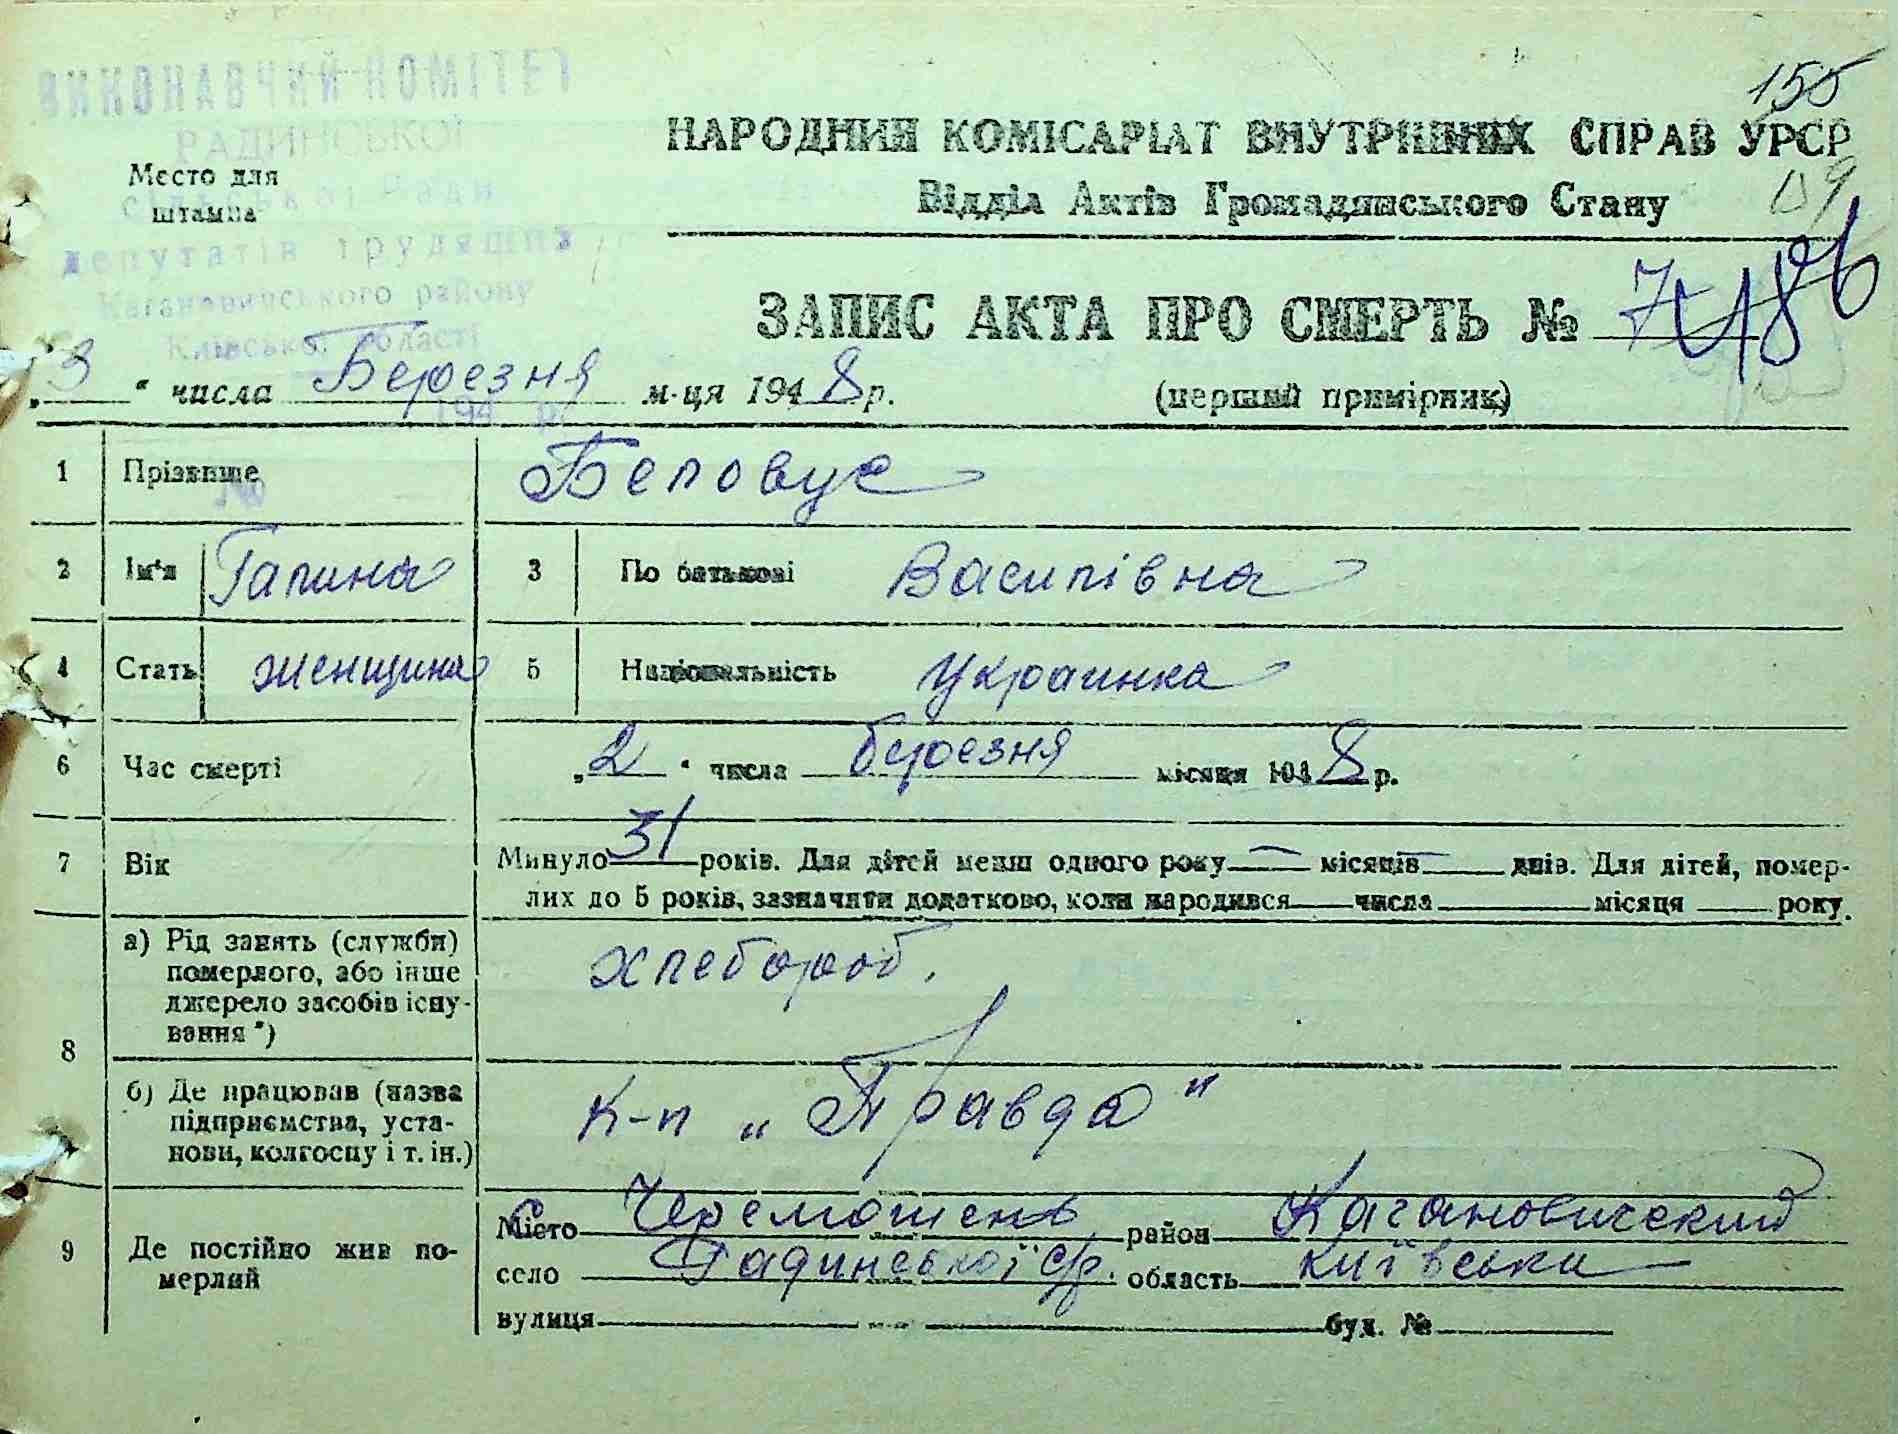 155
ВИКОНАВЧИЙ КОМІТЕТ
РАДИНСЬКОЇ
сільської Ради
депутатів трудящих
Кагановичського району
Київської області
194 р.
№
Место для
штампа
НАРОДНИЙ КОМІСАРІАТ ВНУТРІШНІХ СПРАВ УРСР
Відділ Актів Громадянського Стану
ЗАПИС АКТА ПРО СМЕРТЬ № 7
„3“ числа Березня м-ця 1948 р. (перший примірник)
1 Прізвище Беловус
2 Ім'я Галина 3 По батькові Василівна
4 Стать женщина 5 Національність Украинка
6 Час смерті „2“ числа березня місяця 1948 р.
7 Вік Минуло 31 років. Для дітей менш одного року — місяців — днів. Для дітей, помер-
лих до 5 років, зазначити додатково, коли народився числа місяця року.
8 а) Рід занять (служби)
померлого, або інше
джерело засобів існу-
вання *) хлебороб.
б) Де працював (назва
підприємства, уста-
нови, колгоспу і т. ін.) к-п „Правда"
9 Де постійно жив по-
мерлий
Місто Черемошень район Кагановичский
село Радинської с/р. область київська
вулиця буд. №